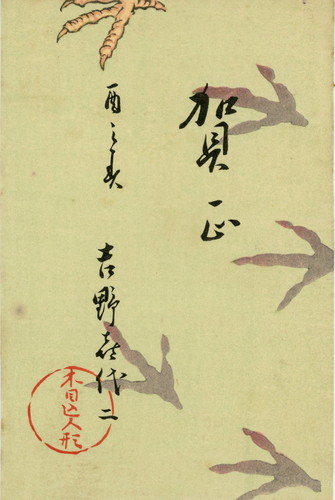 賀正
酉之春
吉野喜代二
木目込
人形